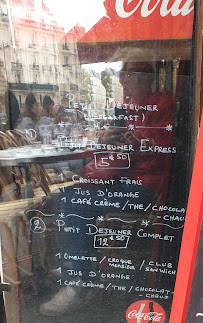 Coca-Cola
Petit Déjeuner
(Breakfast)
1 Petit Déjeuner Express
5€50
Croissant Frais
Jus d'Orange
1 Café Crème / Thé / Chocolat
-Chaud
2 Petit Dejeuner Complet
12€50
1 Omelette / Croque Monsieur / Club Sandwich
1 Jus d'Orange
1 Café Crème / Thé / Chocolat-
Chaud
Coca-Cola